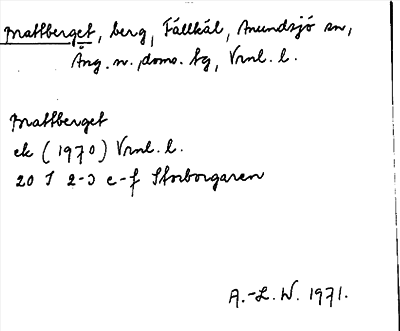 Brattberget, berg, Fällkäl, Anundsjö sn,
Ång. n. doms. tg, Vrml. l.
Brattberget
ek (1970) Vrml. l.
20 I 2-3 e-f Storborgaren
A.-L. W. 1971.